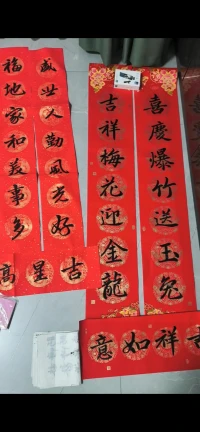 喜慶爆竹送玉兔
吉祥梅花迎金龍
意如祥吉
盛世人勤風光好
福地家和美事多
高星吉